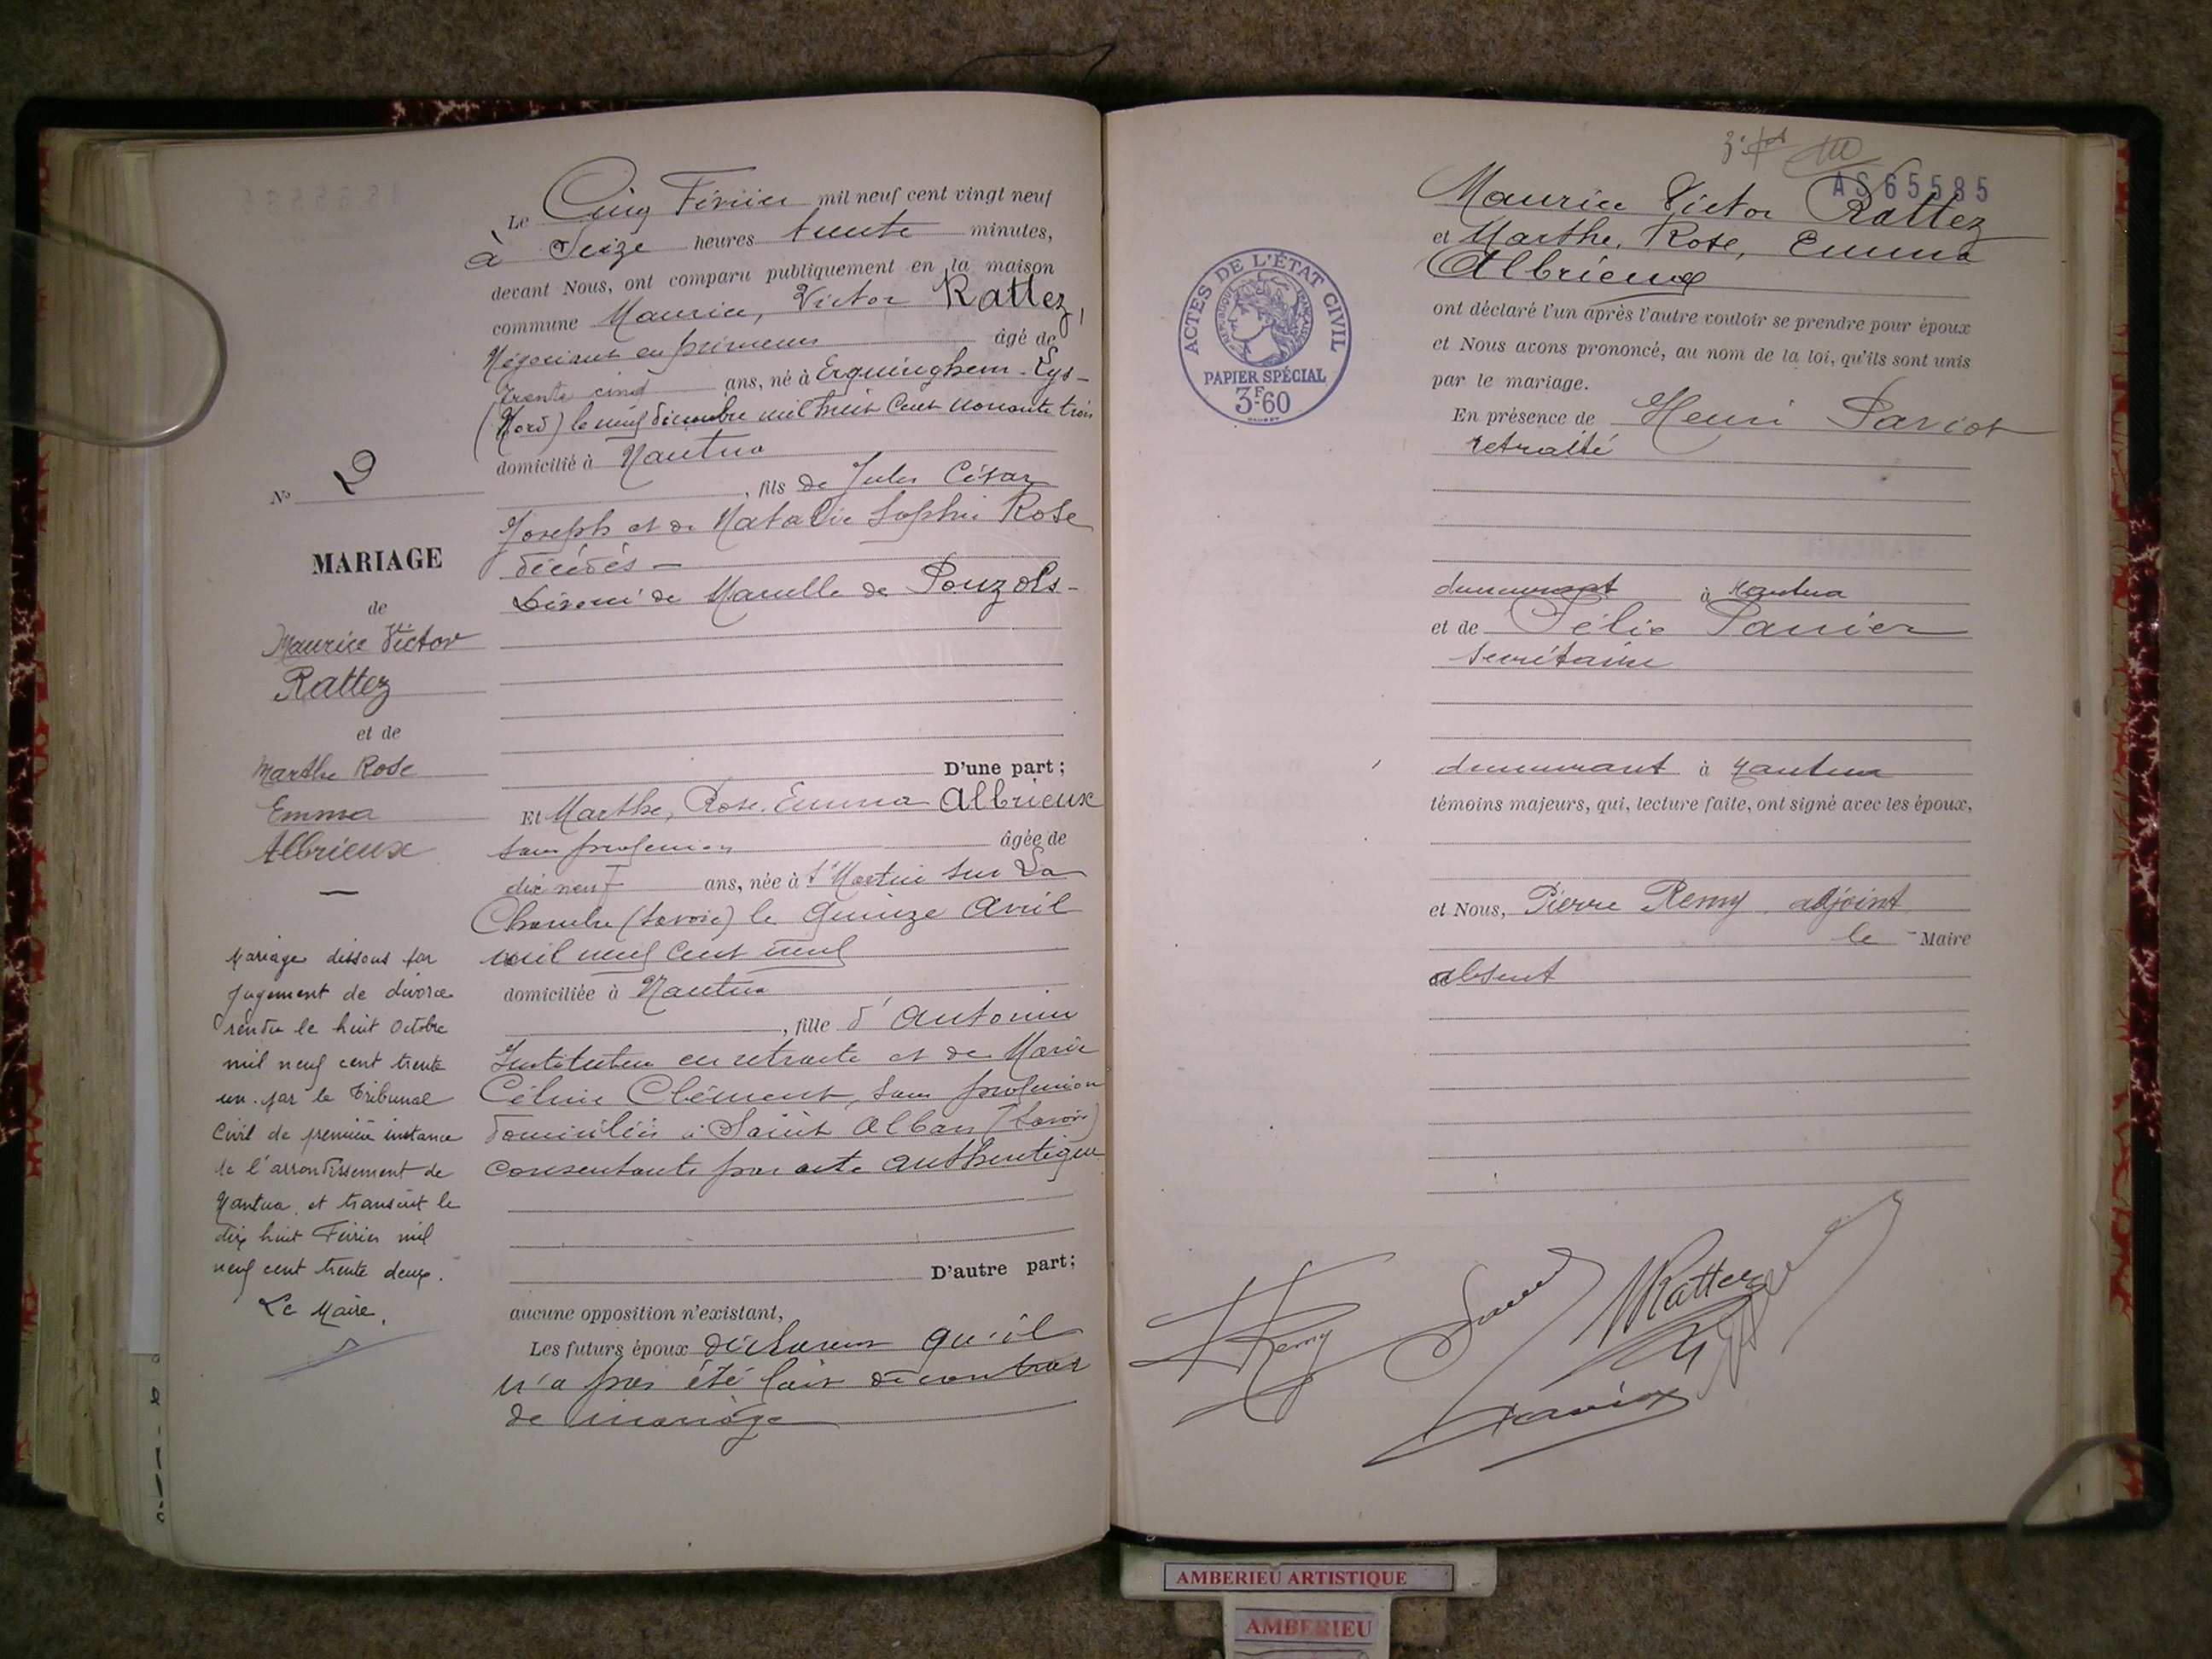 N° 2
MARIAGE
de
Maurice Victor
Rattez
et de
Marthe Rose
Emma
Albrieux
Mariage dissous par
jugement de divorce
rendu le huit Octobre
mil neuf cent trente
un par le Tribunal
Civil de première instance
de l'arrondissement de
Nantua, et transcrit le
dix huit Février mil
neuf cent trente deux.
Le Maire,
Le Cinq Février mil neuf cent vingt neuf
à Seize heures trente minutes,
devant Nous, ont comparu publiquement en la maison
commune Maurice, Victor Rattez,
Négociant en primeurs âgé de
trente cinq ans, né à Erquinghem-Lys-
(Nord) le neuf décembre mil huit cent nonante trois
domicilié à Nantua
, fils de Jules César
Joseph et de Natalie Sophie Rose
décédés -
Divorcé de Marcelle de Pouzols -
D'une part ;
Et Marthe, Rose, Emma Albrieux
sans profession âgée de
dix neuf ans, née à St Martin sur La
Chambre (Savoie) le quinze Avril
mil neuf cent neuf
domiciliée à Nantua
, fille d'Antonin
Instituteur en retraite et de Marie
Céline Clément, sans profession
domiciliés à Saint Alban (Savoie)
consentants par acte authentique
D'autre part ;
aucune opposition n'existant,
Les futurs époux déclarent qu'il
n'a pas été fait de contrat
de mariage
AS65585
Maurice Victor Rattez
et Marthe, Rose, Emma
Albrieux
ont déclaré l'un après l'autre vouloir se prendre pour époux
et Nous avons prononcé, au nom de la loi, qu'ils sont unis
par le mariage.
En présence de Henri Paviot
retraité
demeurant à Nantua
et de Félix Panier
secrétaire
demeurant à Nantua
témoins majeurs, qui, lecture faite, ont signé avec les époux,
et Nous, Pierre Remy adjoint
le Maire
absent
ACTES DE L'ÉTAT CIVIL
RÉPUBLIQUE FRANÇAISE
PAPIER SPÉCIAL
3F60
Remy
MRattez
Paviot
AMBERIEU ARTISTIQUE
AMBERIEU